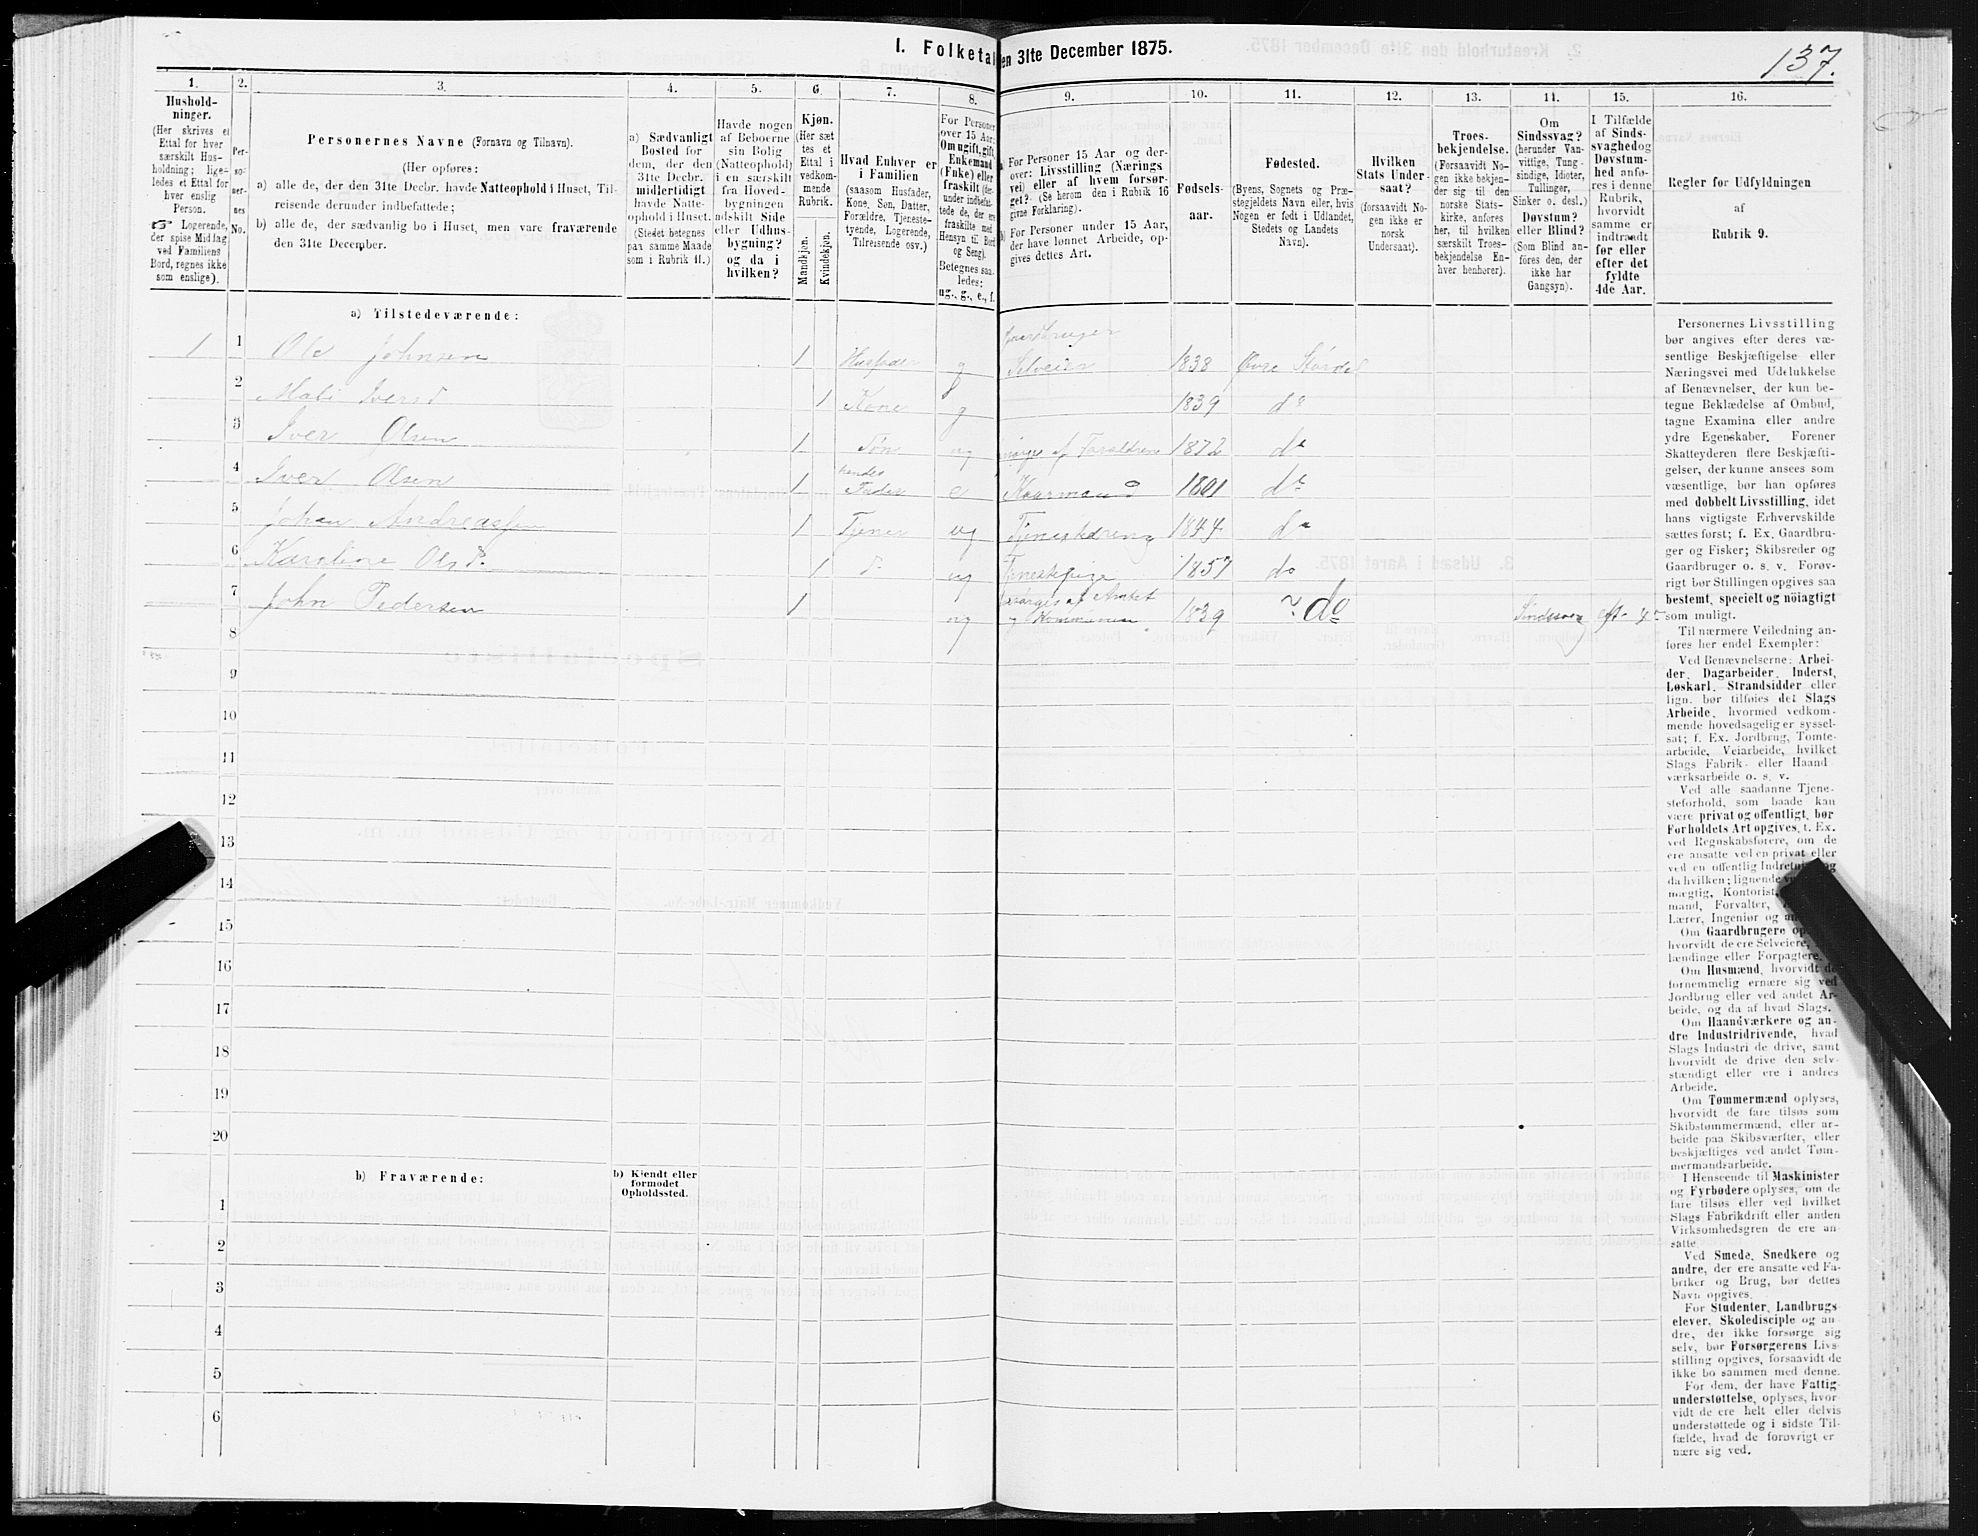 I. Folketal
en 31te December 1875.
137.
1. 2. 3. 4. 5. 6. 7. 8. 9. 10. 11. 12. 13. 14. 15. 16.
Hushold-
ninger.
(Her skrives et
Ettal for hver
særskilt Hus-
holdning; lige-
ledes et Ettal for
hver enslig
Person.
☞ Logerende,
der spise Middag
ved Familiens
Bord, regnes ikke
som enslige).
Per-
so-
ner-
nes
No.
Personernes Navne (Fornavn og Tilnavn).
(Her opføres:
a) alle de, der den 31te Decbr. havde Natteophold i Huset, Til-
reisende derunder indbefattede;
b) alle de, der sædvanlig bo i Huset, men vare fraværende
den 31te December.
a) Sædvanligt
Bosted for
dem, der den
31te Decbr.
midlertidigt
havde Natte-
ophold i Huset.
(Stedet betegnes
paa samme Maade
som i Rubrik 11.)
Havde nogen
af Beboerne
sin Bolig
(Natteophold)
i en særskilt
fra Hoved-
bygningen
adskilt Side
eller Udhus-
bygning?
og da i
hvilken?
Kjøn.
(Her sæt-
tes et
Ettal i
vedkom-
mende
Rubrik.
Mandkjøn.
Kvindekjøn.
Hvad Enhver er
i Familien
(saasom Husfader,
Kone, Søn, Datter,
Forældre, Tjeneste-
tyende, Logerende,
Tilreisende osv.)
For Personer
over 15 Aar:
Om ugift, gift,
Enkemand
(Enke) eller
fraskilt (der-
under indbefat-
tede de, der ere
fraskilte med
Hensyn til Bord
og Seng).
Betegnes saa-
ledes:
ug., g., e., f.
a) For Personer 15 Aar og der-
over: Livsstilling (Nærings-
vei) eller af hvem forsør-
get? (Se herom den i Rubrik 16
givne Forklaring).
b) For Personer under 15 Aar,
der have lønnet Arbeide, op-
gives dettes Art.
Fødsels-
aar.
Fødested.
(Byens, Sognets og Præ-
stegjeldets Navn eller, hvis
Nogen er født i Udlandet,
Stedets og Landets
Navn).
Hvilken
Stats Under-
saat?
(forsaavidt No-
gen ikke er
norsk
Undersaat).
Troes-
bekjendelse.
(Forsaavidt No-
gen ikke bekjen-
der sig til den
norske Stats-
kirke, anføres
her, til hvilken
særskilt Troes-
bekjendelse En-
hver henhører).
Om
Sindssvag?
(herunder Van-
vittige, Tung-
sindige, Idioter,
Tullinger,
Sinker o. desl.)
Døvstum?
eller Blind?
(Som Blind an-
føres den, der
ikke har
Gangsyn).
I Tilfælde
af Sinds-
svaghed og
Døvstum-
hed anfø-
res i denne
Rubrik,
hvorvidt
samme er
indtraadt
før eller
efter det
fyldte
4de Aar.
Regler for Udfyldningen
af
Rubrik 9.
a) Tilstedeværende:
1 1 Ole Johnsen 1 Husfader g Selveier 1838 Øvre Størdal
2 Mali Iversd 1 Kone g 1839 do
3 Iver Olsen 1 Søn ug af Forældrene 1872 do
4 Iver Olsen 1 hendes Fader e Kaarmand 1801 do
5 Johan Andreassen 1 Tjener ug Tjenestedreng 1844 do
6 Karoline Olsd. 1 d. ug Tjenestepige 1857 do
7 John Pedersen 1 ug forsørges af Amtet og Kommunen 1839 do Sindssvag eft. 4
8
9
10
11
12
13
14
15
16
17
18
19
20
b) Fraværende:
b) Kjendt eller
formodet
Opholdssted.
1
2
3
4
5
6
Personernes Livsstilling
bør angives efter deres væ-
sentlige Beskjæftigelse eller
Næringsvei med Udelukkelse
af Benævnelser, der kun be-
tegne Beklædelse af Ombud,
tagne Examina eller andre
ydre Egenskaber. Forener
Skatteyderen flere Beskjæfti-
gelser, der kunne ansees som
væsentlige, bør han opføres
med dobbelt Livsstilling, idet
hans vigtigste Erhvervskilde
sættes først; f. Ex. Gaardbru-
ger og Fisker; Skibsreder og
Gaardbruger o. s. v. Forøv-
rigt bør Stillingen opgives saa
bestemt, specielt og nöiagtigt
som muligt.
Til nærmere Veiledning an-
føres her endel Exempler:
Ved Benævnelserne: Arbei-
der, Dagarbeider, Inderst,
Løskarl, Strandsidder eller
lign. bør tilføies det Slags
Arbeide, hvormed vedkom-
mende hovedsagelig er syssel-
sat; f. Ex. Jordbrug, Tomte-
arbeide, Veiarbeide, hvilket
Slags Fabrik- eller Haand-
værksarbeide o. s. v.
Ved alle saadanne Tjene-
steforhold, som baade kan
være privat og offentligt, bør
Forholdets Art opgives, t. Ex.
ved Regnskabsførere, om de
ere ansatte ved en privat eller
ved en offentlig Indretning og
da hvilken; lignende
mægtig, Kontorist,
mand, Forvalter,
Lærer, Ingeniør og
Om Gaardbrugere
hvorvidt de ere Selveiere,
lændinge eller Forpagtere.
Om Husmænd, hvorvidt de
fornemmelig ernære sig ved
Jordbrug eller ved andet Ar-
beide, og da af hvad Slags.
Om Haandværkere og an-
dre Industridrivende, hvad
Slags Industri de drive, samt
hvorvidt de drive den selv-
stændigt eller ere i andres
Arbeide.
Om Tømmermænd oplyses,
hvorvidt de fare tilsøs som
Skibstømmermænd, eller ar-
beide paa Skibsværfter, eller
beskjæftiges ved andet Tøm-
mermandsarbeide.
I Henseende til Maskinister
og Fyrbødere oplyses, om de
fare tilsøs eller ved hvilket
Slags Fabrikdrift eller anden
Virksomhedsgren de ere an-
satte.
Ved Smede, Snedkere og
andre, der ere ansatte ved Fa-
briker og Brug, bør dettes
Navn opgives.
For Studenter, Landbrugs-
elever, Skoledisciple og an-
dre, der ikke forsørge sig
selv, bør Forsørgerens Livs-
stilling opgives, forsaavidt de
ikke bo sammen med denne.
For dem, der have Fattig-
understøttelse, oplyses, hvor-
vidt de ere helt eller delvis
understøttede og i sidste Til-
fælde, hvad de forøvrigt er
nære sig ved.